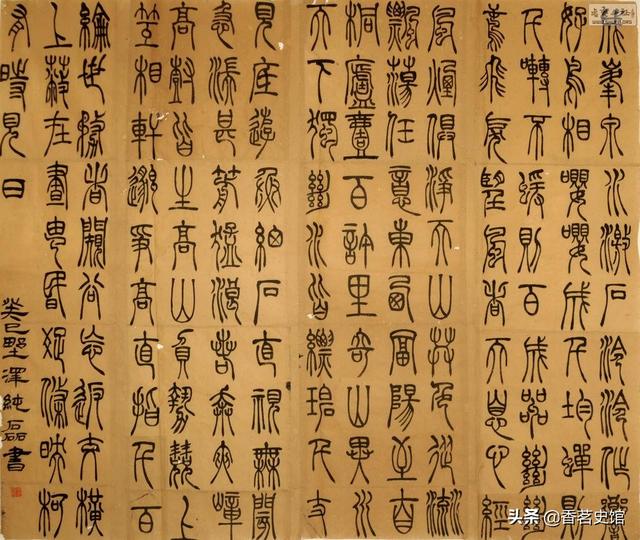 峯泉水激石泠泠作響
好鳥相嚶嚶成千均蟬則
千囀不蝯則百
鳶飛戾望峯者天息心經
風煙俱淨天山共色從流
飄蕩任意東西富陽至
桐廬壹百許里奇山異水
天下獨幽水皆縹碧千丈
見底遊魚細石直視無閡
急湍甚箭猛浪若奔夾嶂
高樹皆生高山負勢競上
竝相軒邈爭高直指千百
綸世務者闚谷忘返丈橫
上蔽在晝由昏疏條映柯
有時見日
癸巳野澤純磊書
头条 @香茗史馆